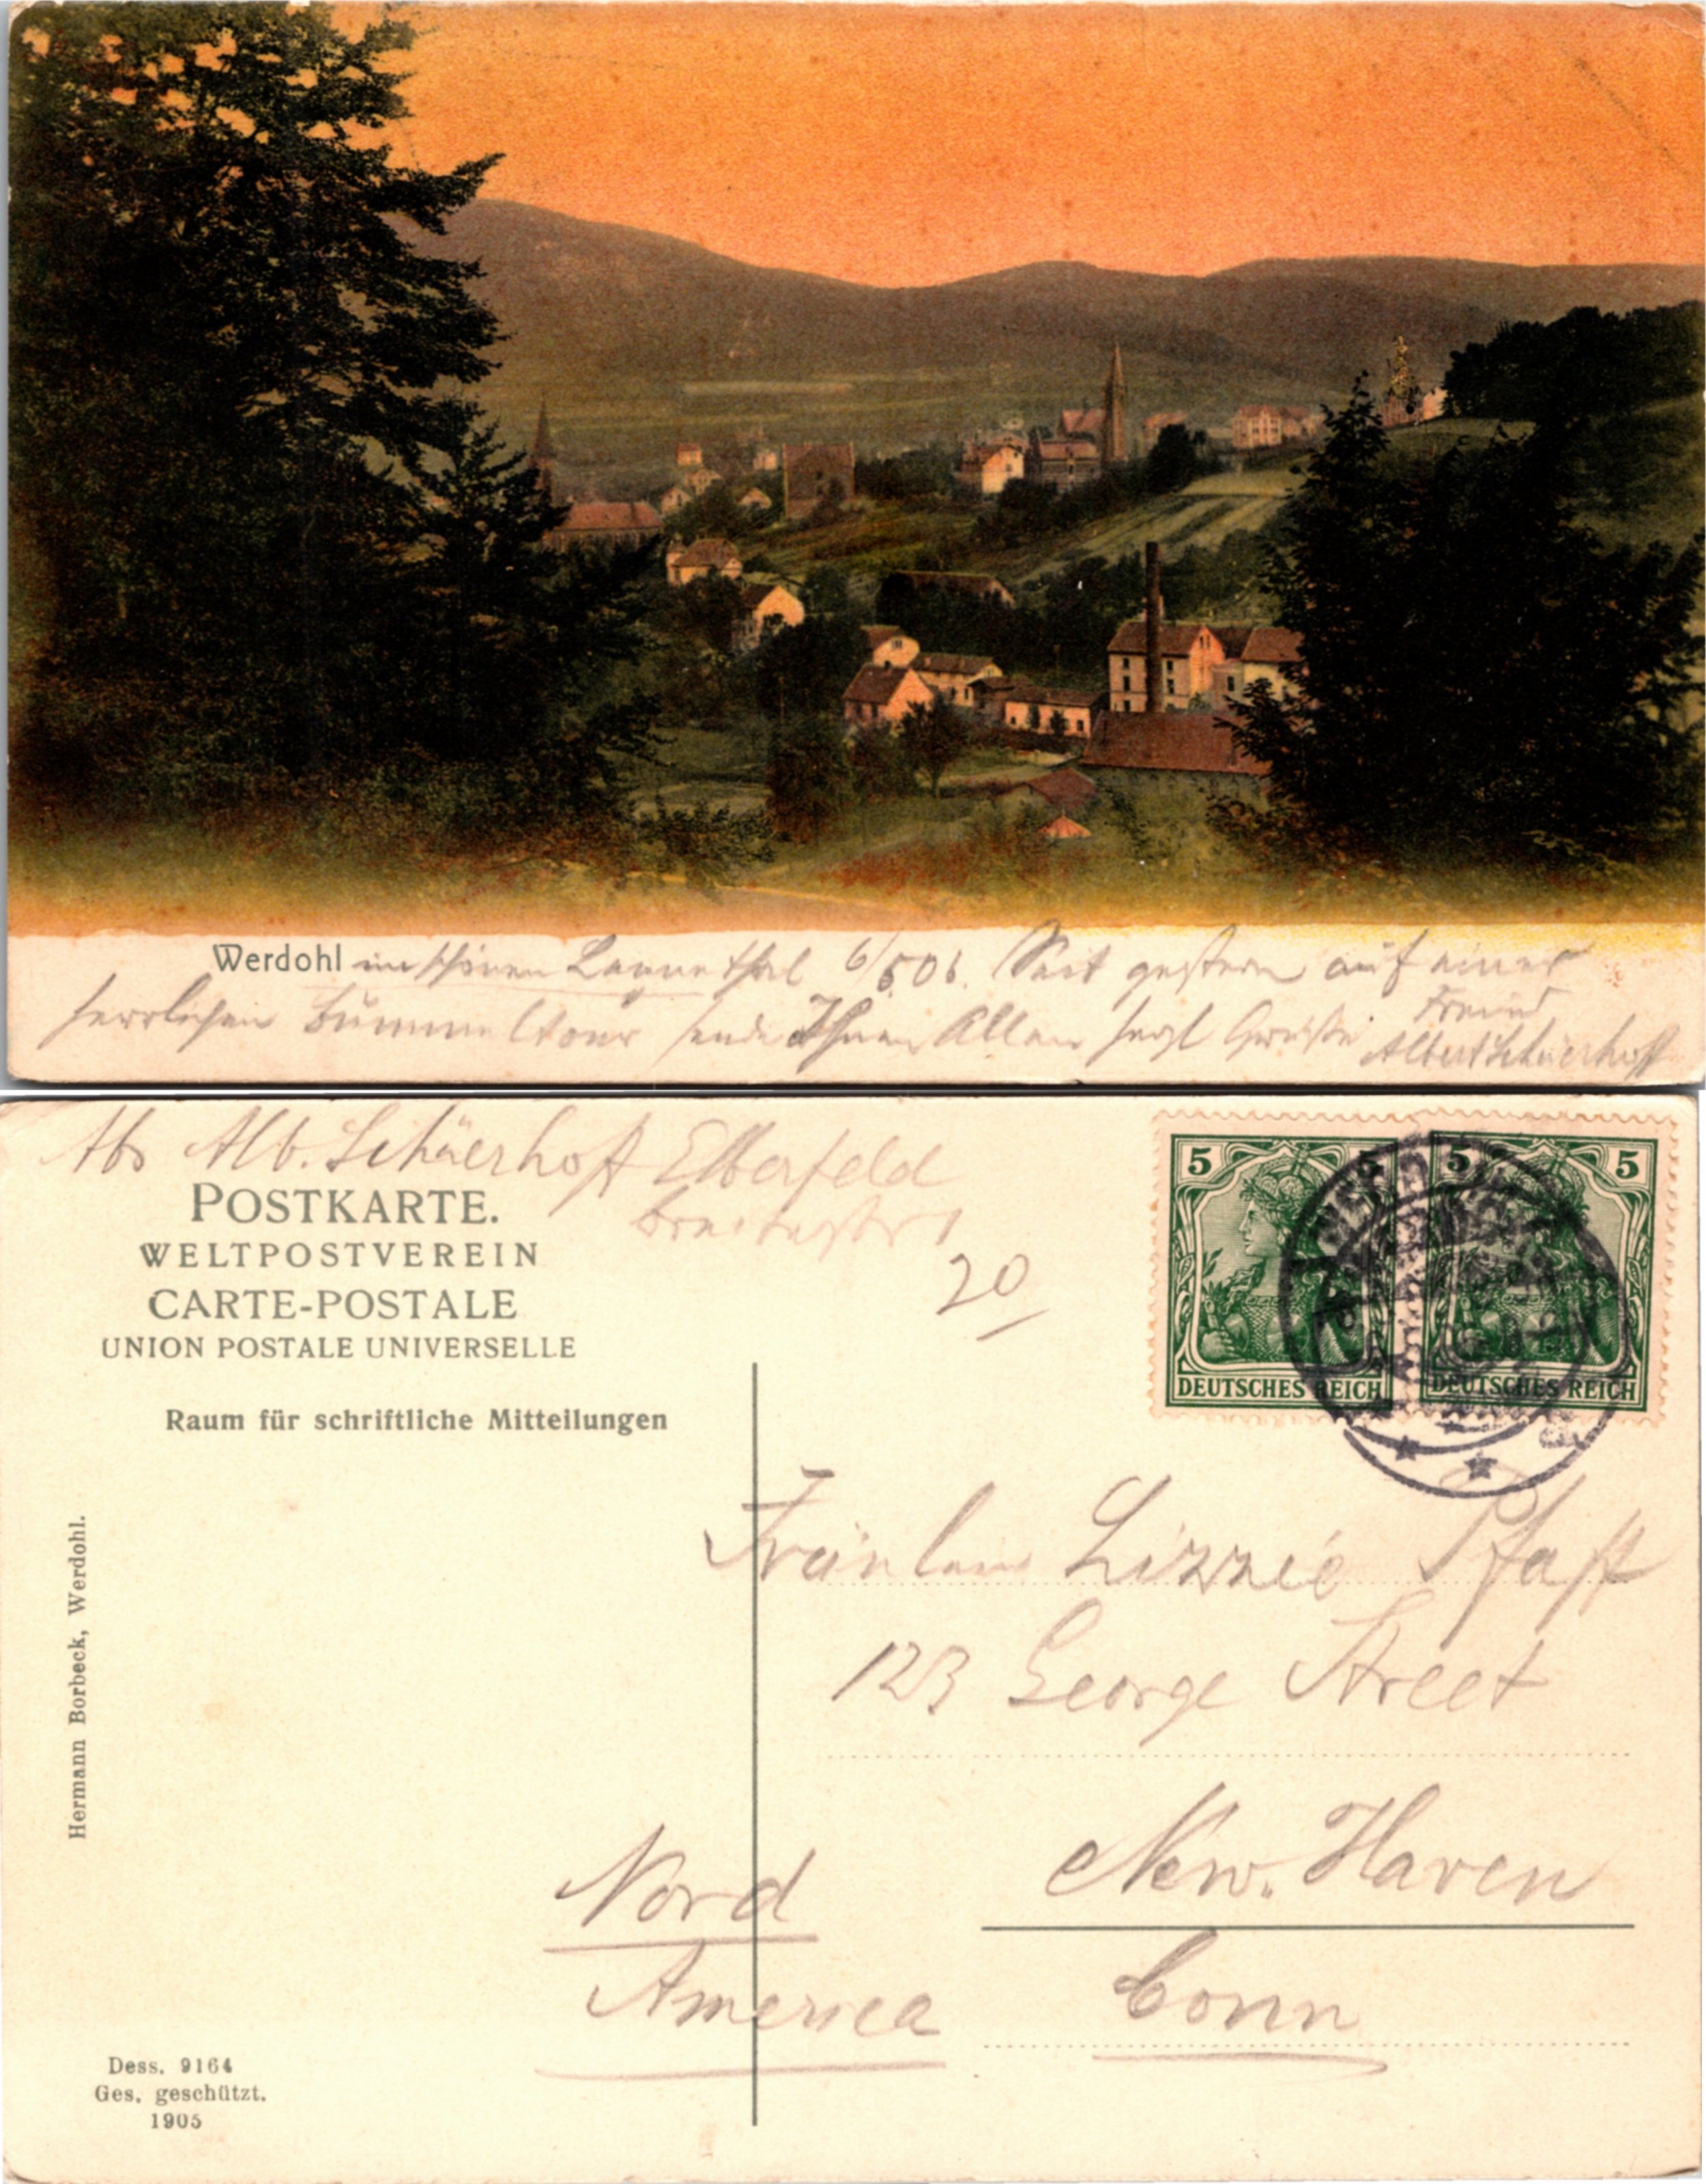 Werdohl im schönen Lennethal 6/5 06. Seit gestern auf einer
herrlichen Bummeltour sende Ihnen Allen herzl Grüße Freund
Albert Schüerhoff
Abs Alb. Schüerhoff Elberfeld
POSTKARTE.
WELTPOSTVEREIN
CARTE-POSTALE
UNION POSTALE UNIVERSELLE
20
5 5 5
DEUTSCHES REICH DEUTSCHES REICH
Raum für schriftliche Mitteilungen
Fräulein Lizzie Pfaff
123 George Street
New. Haven
Conn
Nord
America
Hermann Borbeck, Werdohl.
Dess. 9164
Ges. geschützt.
1905